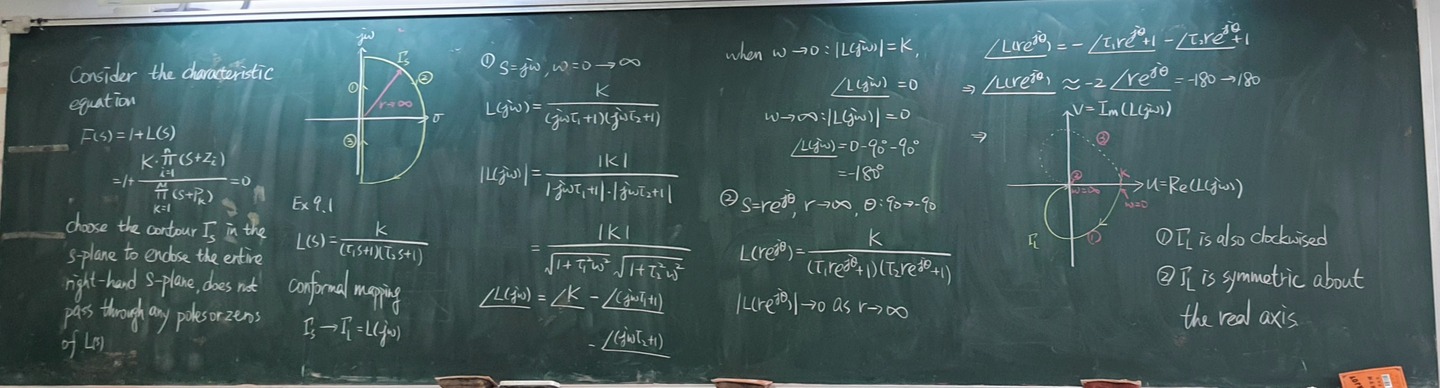 Consider the characteristic
equation
F(s)=1+L(s)
=1+ K·∏_{i=1}^{n}(s+Z_i) / ∏_{k=1}^{M}(s+P_k) =0
choose the contour Γs in the
s-plane to enclose the entire
right-hand s-plane, does not
pass through any poles or zeros
of L(s)
jω
Γs
①
②
r→∞
σ
③
Ex 9.1
L(s)= K / (τ₁s+1)(τ₂s+1)
conformal mapping
Γs → ΓL = L(jω)
① S=jω, ω=0→∞
L(jω)= K / (jωτ₁+1)(jωτ₂+1)
|L(jω)|= |K| / |jωτ₁+1|·|jωτ₂+1|
= |K| / √(1+τ₁²ω²) √(1+τ₂²ω²)
∠L(jω) = ∠K - ∠(jωτ₁+1)
- ∠(jωτ₂+1)
when ω→0: |L(jω)|=K,
∠L(jω) =0
ω→∞: |L(jω)|=0
∠L(jω) =0-90°-90°
=-180°
② S=re^{jθ}, r→∞, θ:90→-90
L(re^{jθ})= K / (τ₁re^{jθ}+1)(τ₂re^{jθ}+1)
|L(re^{jθ})|→0 as r→∞
∠L(re^{jθ}) = - ∠τ₁re^{jθ}+1 - ∠τ₂re^{jθ}+1
⇒ ∠L(re^{jθ}) ≈ -2 ∠re^{jθ} = -180→180
⇒
V=Im(L(jω))
③
②
K
ω=∞
ω=0
U=Re(L(jω))
ΓL
①
① ΓL is also clockwised
② ΓL is symmetric about
the real axis